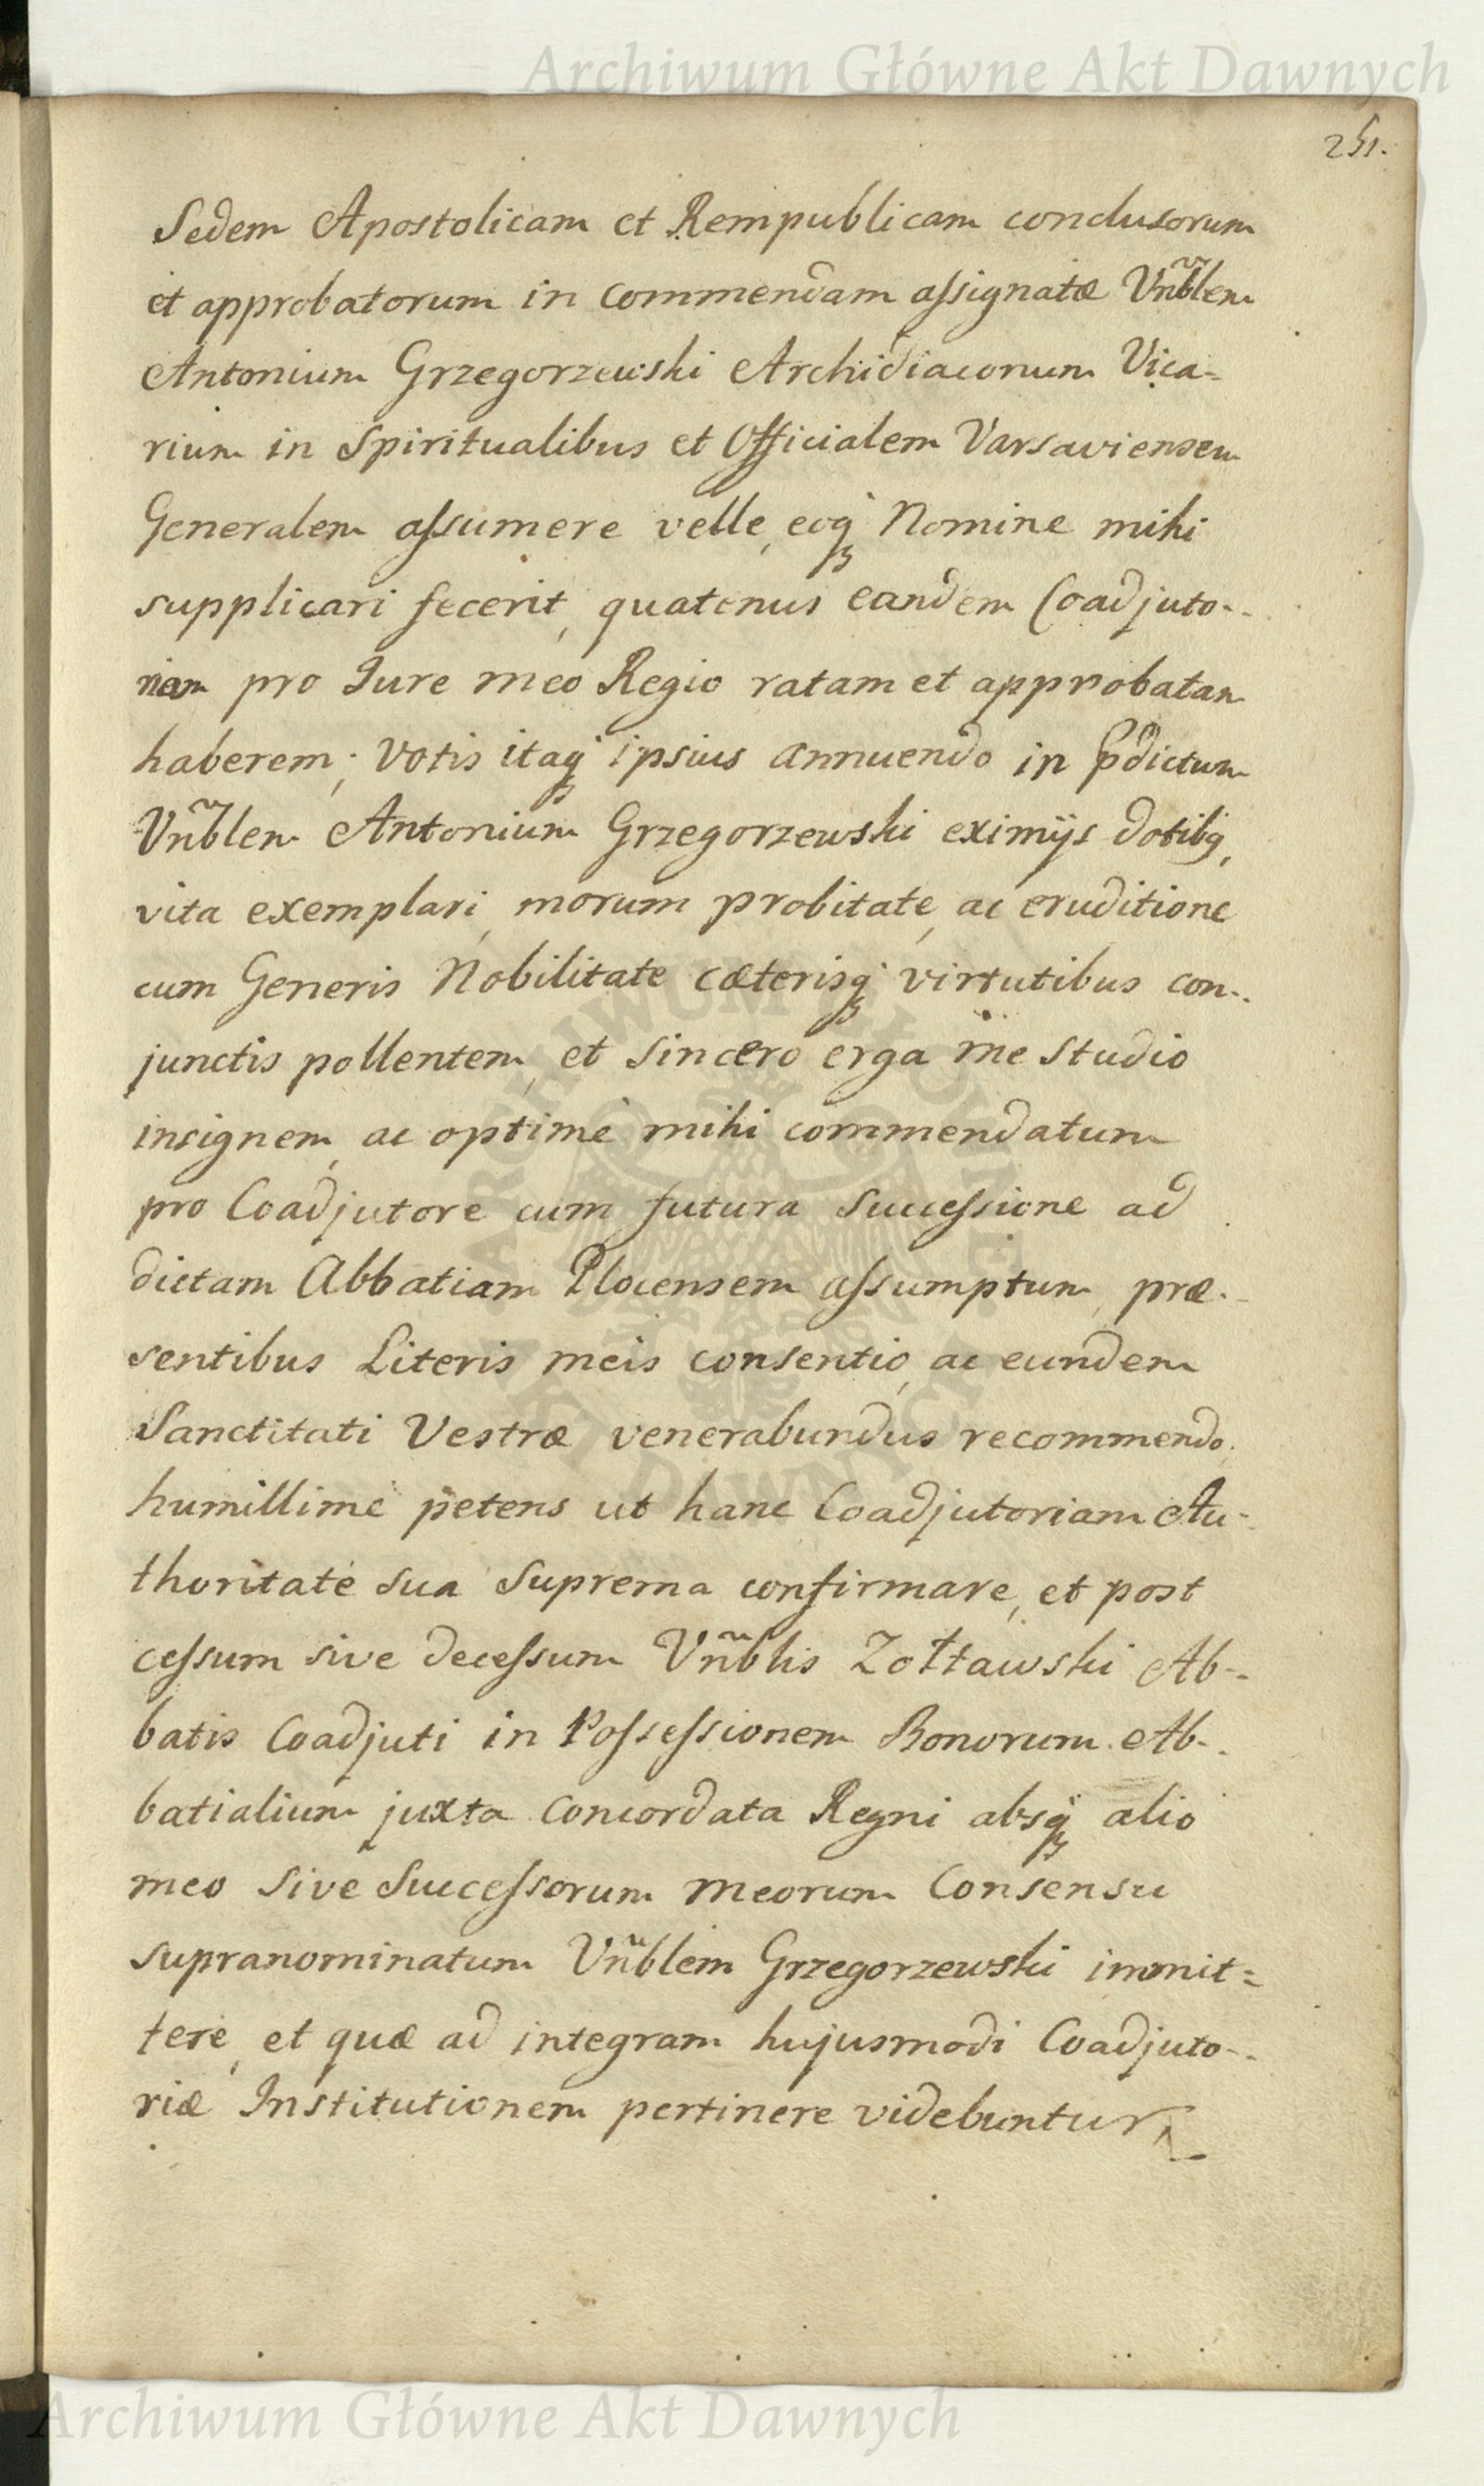 Archiwum Główne Akt Dawnych
251.
Sedem Apostolicam et Rempublicam conclusorum
et approbatorum in commendam assignatæ Vnblem
Antonium Grzegorzewski Archidiaconum Vica-
rium in Spiritualibus et Officialem Varsaviensem
Generalem assumere velle, eoq; Nomine mihi
supplicari fecerit, quatenus eandem Coadjuto-
riam pro Jure meo Regio ratam et approbatam
haberem; votis itaq; ipsius annuendo in pdictum
Vnblem Antonium Grzegorzewski eximijs dotibq,
vita exemplari, morum probitate, ac eruditione
cum Generis Nobilitate cæterisq; virtutibus con-
junctis pollentem, et sincero erga me studio
insignem, ac optimè mihi commendatum
pro Coadjutore cum futura successione ad
dictam Abbatiam Plocensem assumptum, præ-
sentibus Literis meis consentio, ac eundem
Sanctitati Vestræ venerabundus recommendo.
humillimè petens ut hanc Coadjutoriam Au-
thoritate sua Suprema confirmare, et post
cessum sive decessum Vnblis Zołtawski Ab-
batis Coadjuti in Possessionem Bonorum Ab-
batialium juxta Concordata Regni absq; alio
meo sive Successorum meorum Consensu
supranominatum Vnblem Grzegorzewski immit-
tere, et quæ ad integram hujusmodi Coadjuto-
riæ Institutionem pertinere videbuntur
ARCHIWUM GŁÓWNE AKT DAWNYCH
Archiwum Główne Akt Dawnych